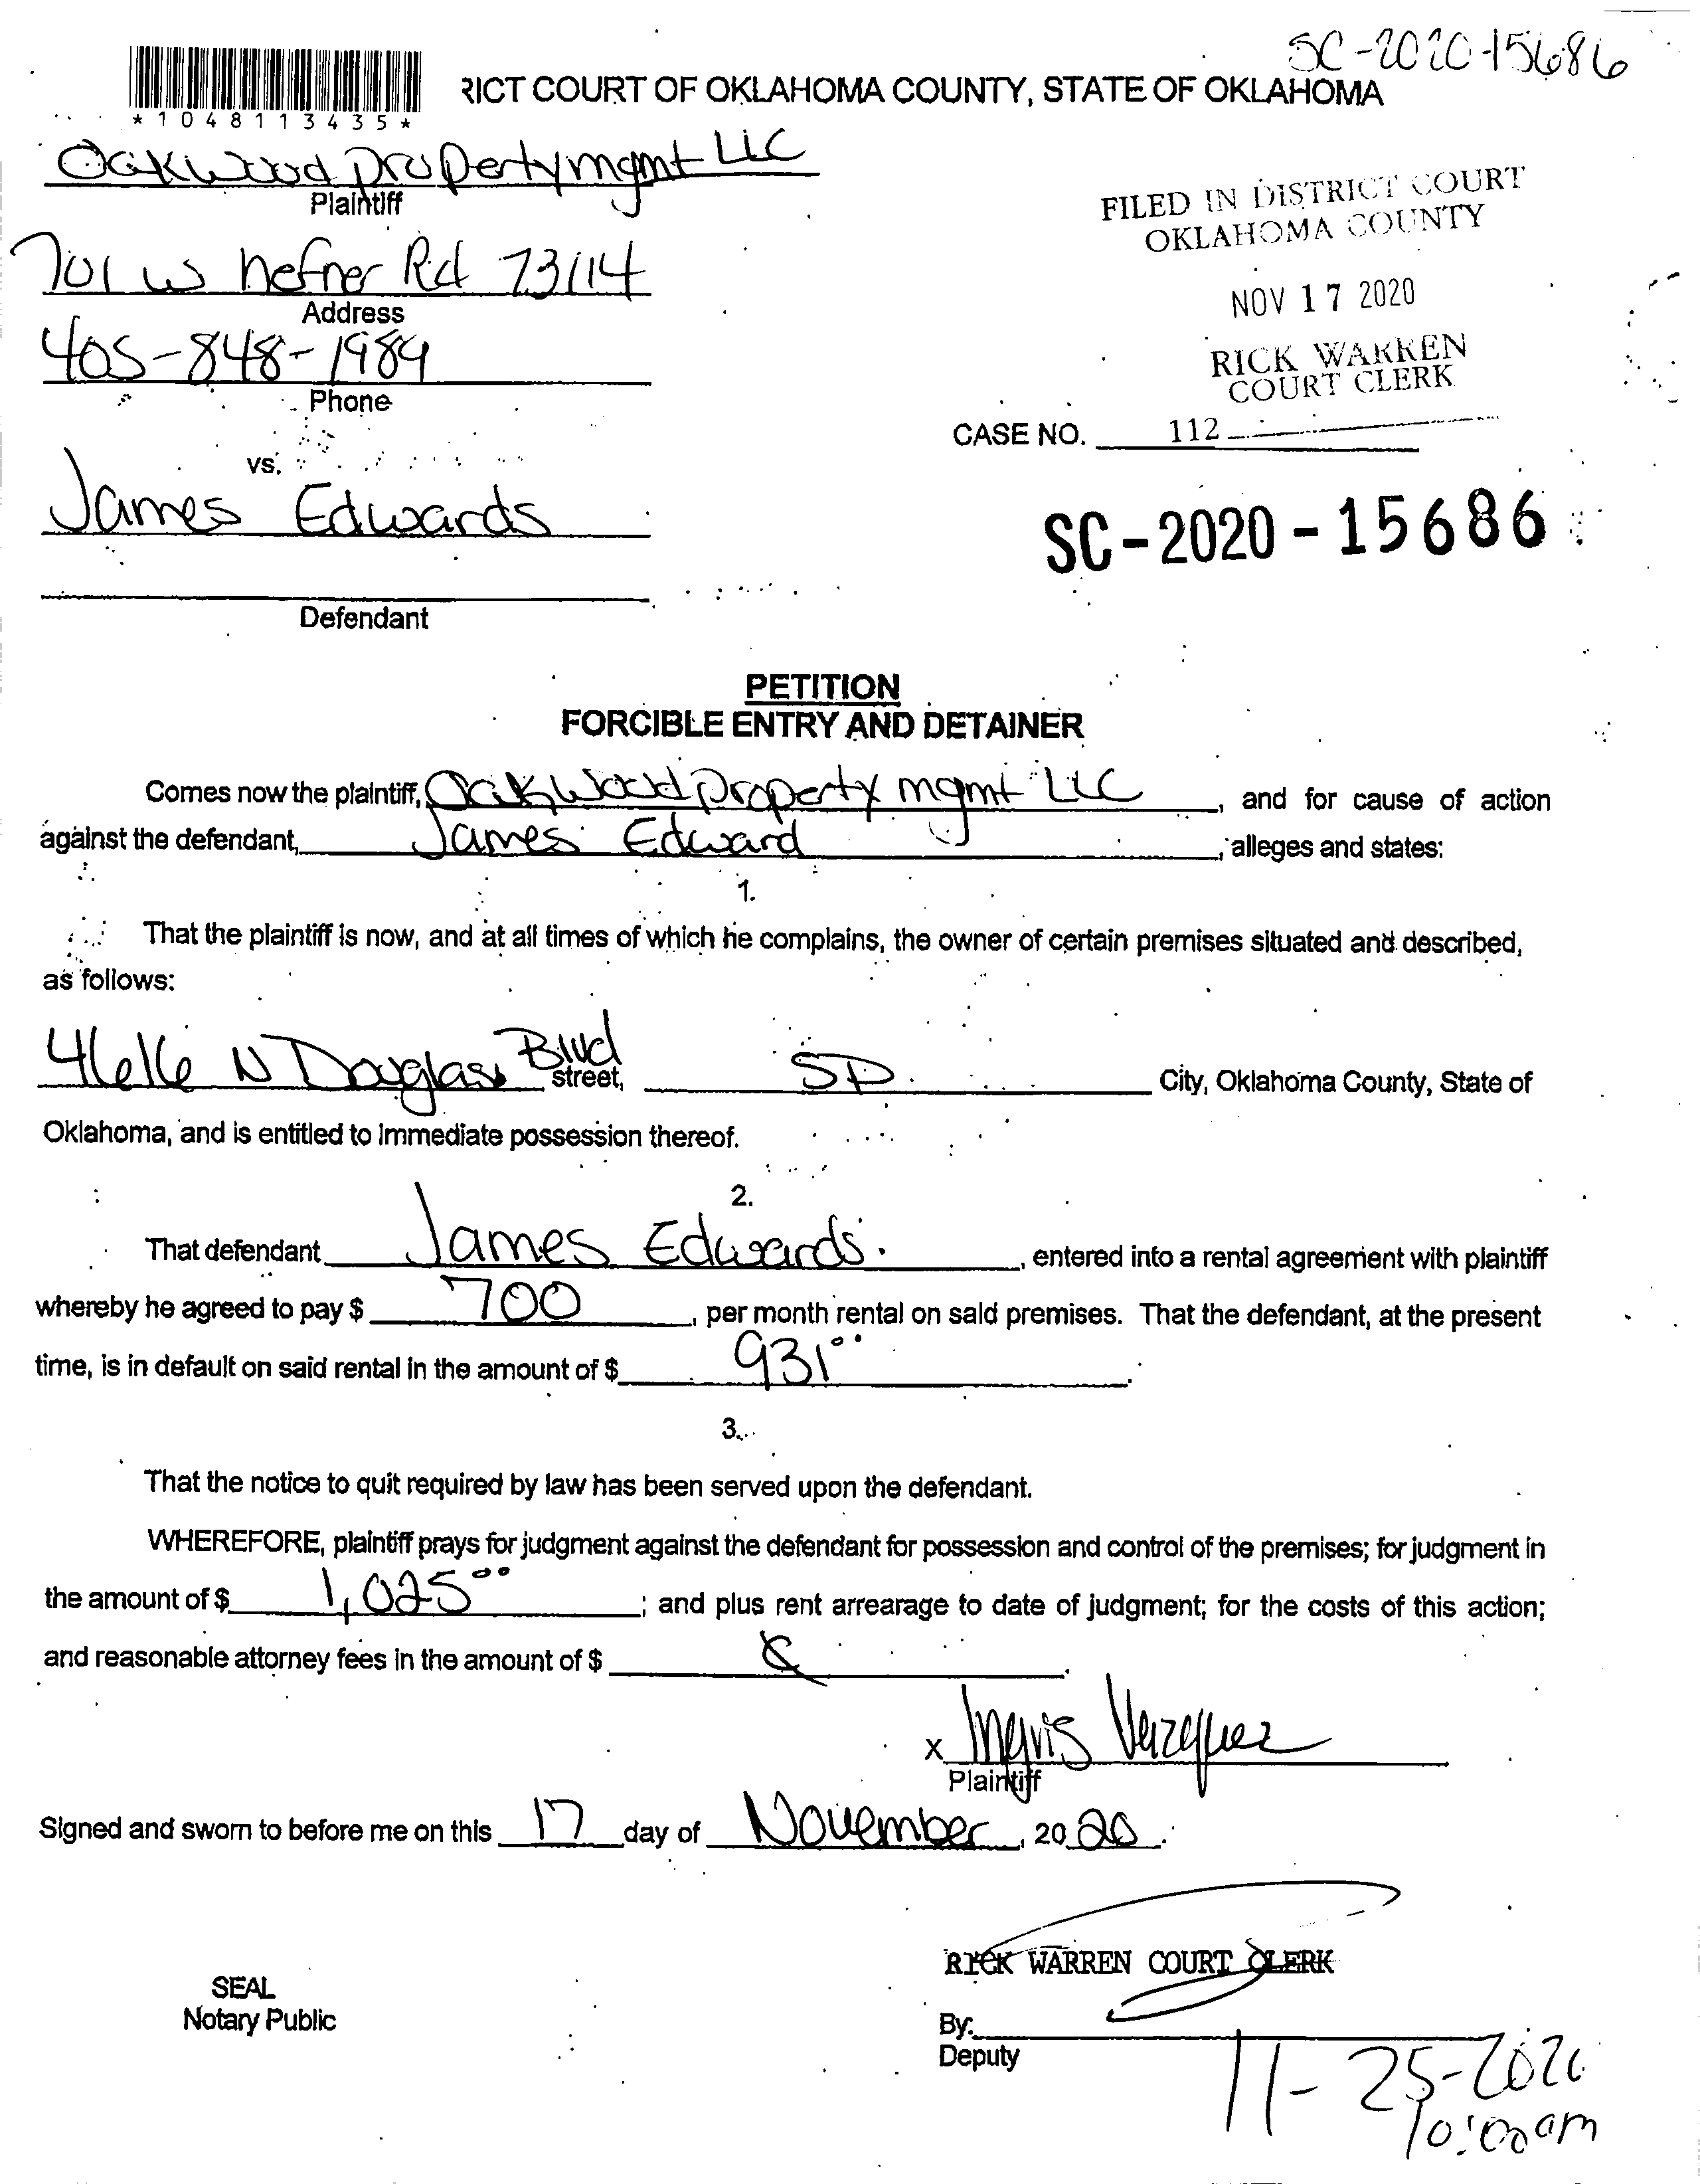 SC-2020-15686
*1048113435*
RICT COURT OF OKLAHOMA COUNTY, STATE OF OKLAHOMA
Oakwood Property mgmt LLC
Plaintiff
FILED IN DISTRICT COURT
OKLAHOMA COUNTY
701 W hefner Rd 73114
Address
NOV 17 2020
405-848-1984
Phone
RICK WARREN
COURT CLERK
CASE NO. 112
vs.
James Edwards
SC-2020-15686
Defendant
PETITION
FORCIBLE ENTRY AND DETAINER
Comes now the plaintiff, Oakwood property mgmt LLC, and for cause of action
against the defendant, James Edward, alleges and states:
1.
That the plaintiff is now, and at all times of which he complains, the owner of certain premises situated and described,
as follows:
4616 N Douglas Blvd street, SP City, Oklahoma County, State of
Oklahoma, and is entitled to immediate possession thereof.
2.
That defendant James Edwards, entered into a rental agreement with plaintiff
whereby he agreed to pay $ 700, per month rental on said premises. That the defendant, at the present
time, is in default on said rental in the amount of $ 931.00.
3.
That the notice to quit required by law has been served upon the defendant.
WHEREFORE, plaintiff prays for judgment against the defendant for possession and control of the premises; for judgment in
the amount of $ 1,025.00; and plus rent arrearage to date of judgment; for the costs of this action;
and reasonable attorney fees in the amount of $
x Ingris Vazquez
Plaintiff
Signed and sworn to before me on this 17 day of November, 2020.
RICK WARREN COURT CLERK
SEAL
Notary Public
By:
Deputy
11-25-2020
10:00am